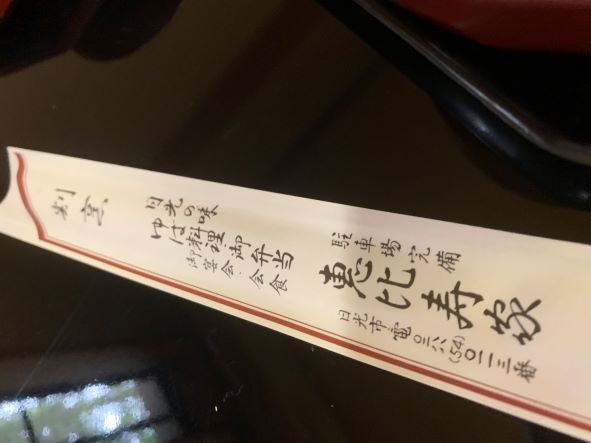 割烹
日光の味
ゆば料理 御弁当
御宴会・会食
駐車場完備
恵比寿家
日光市・電〇二八八(54)〇一一三番